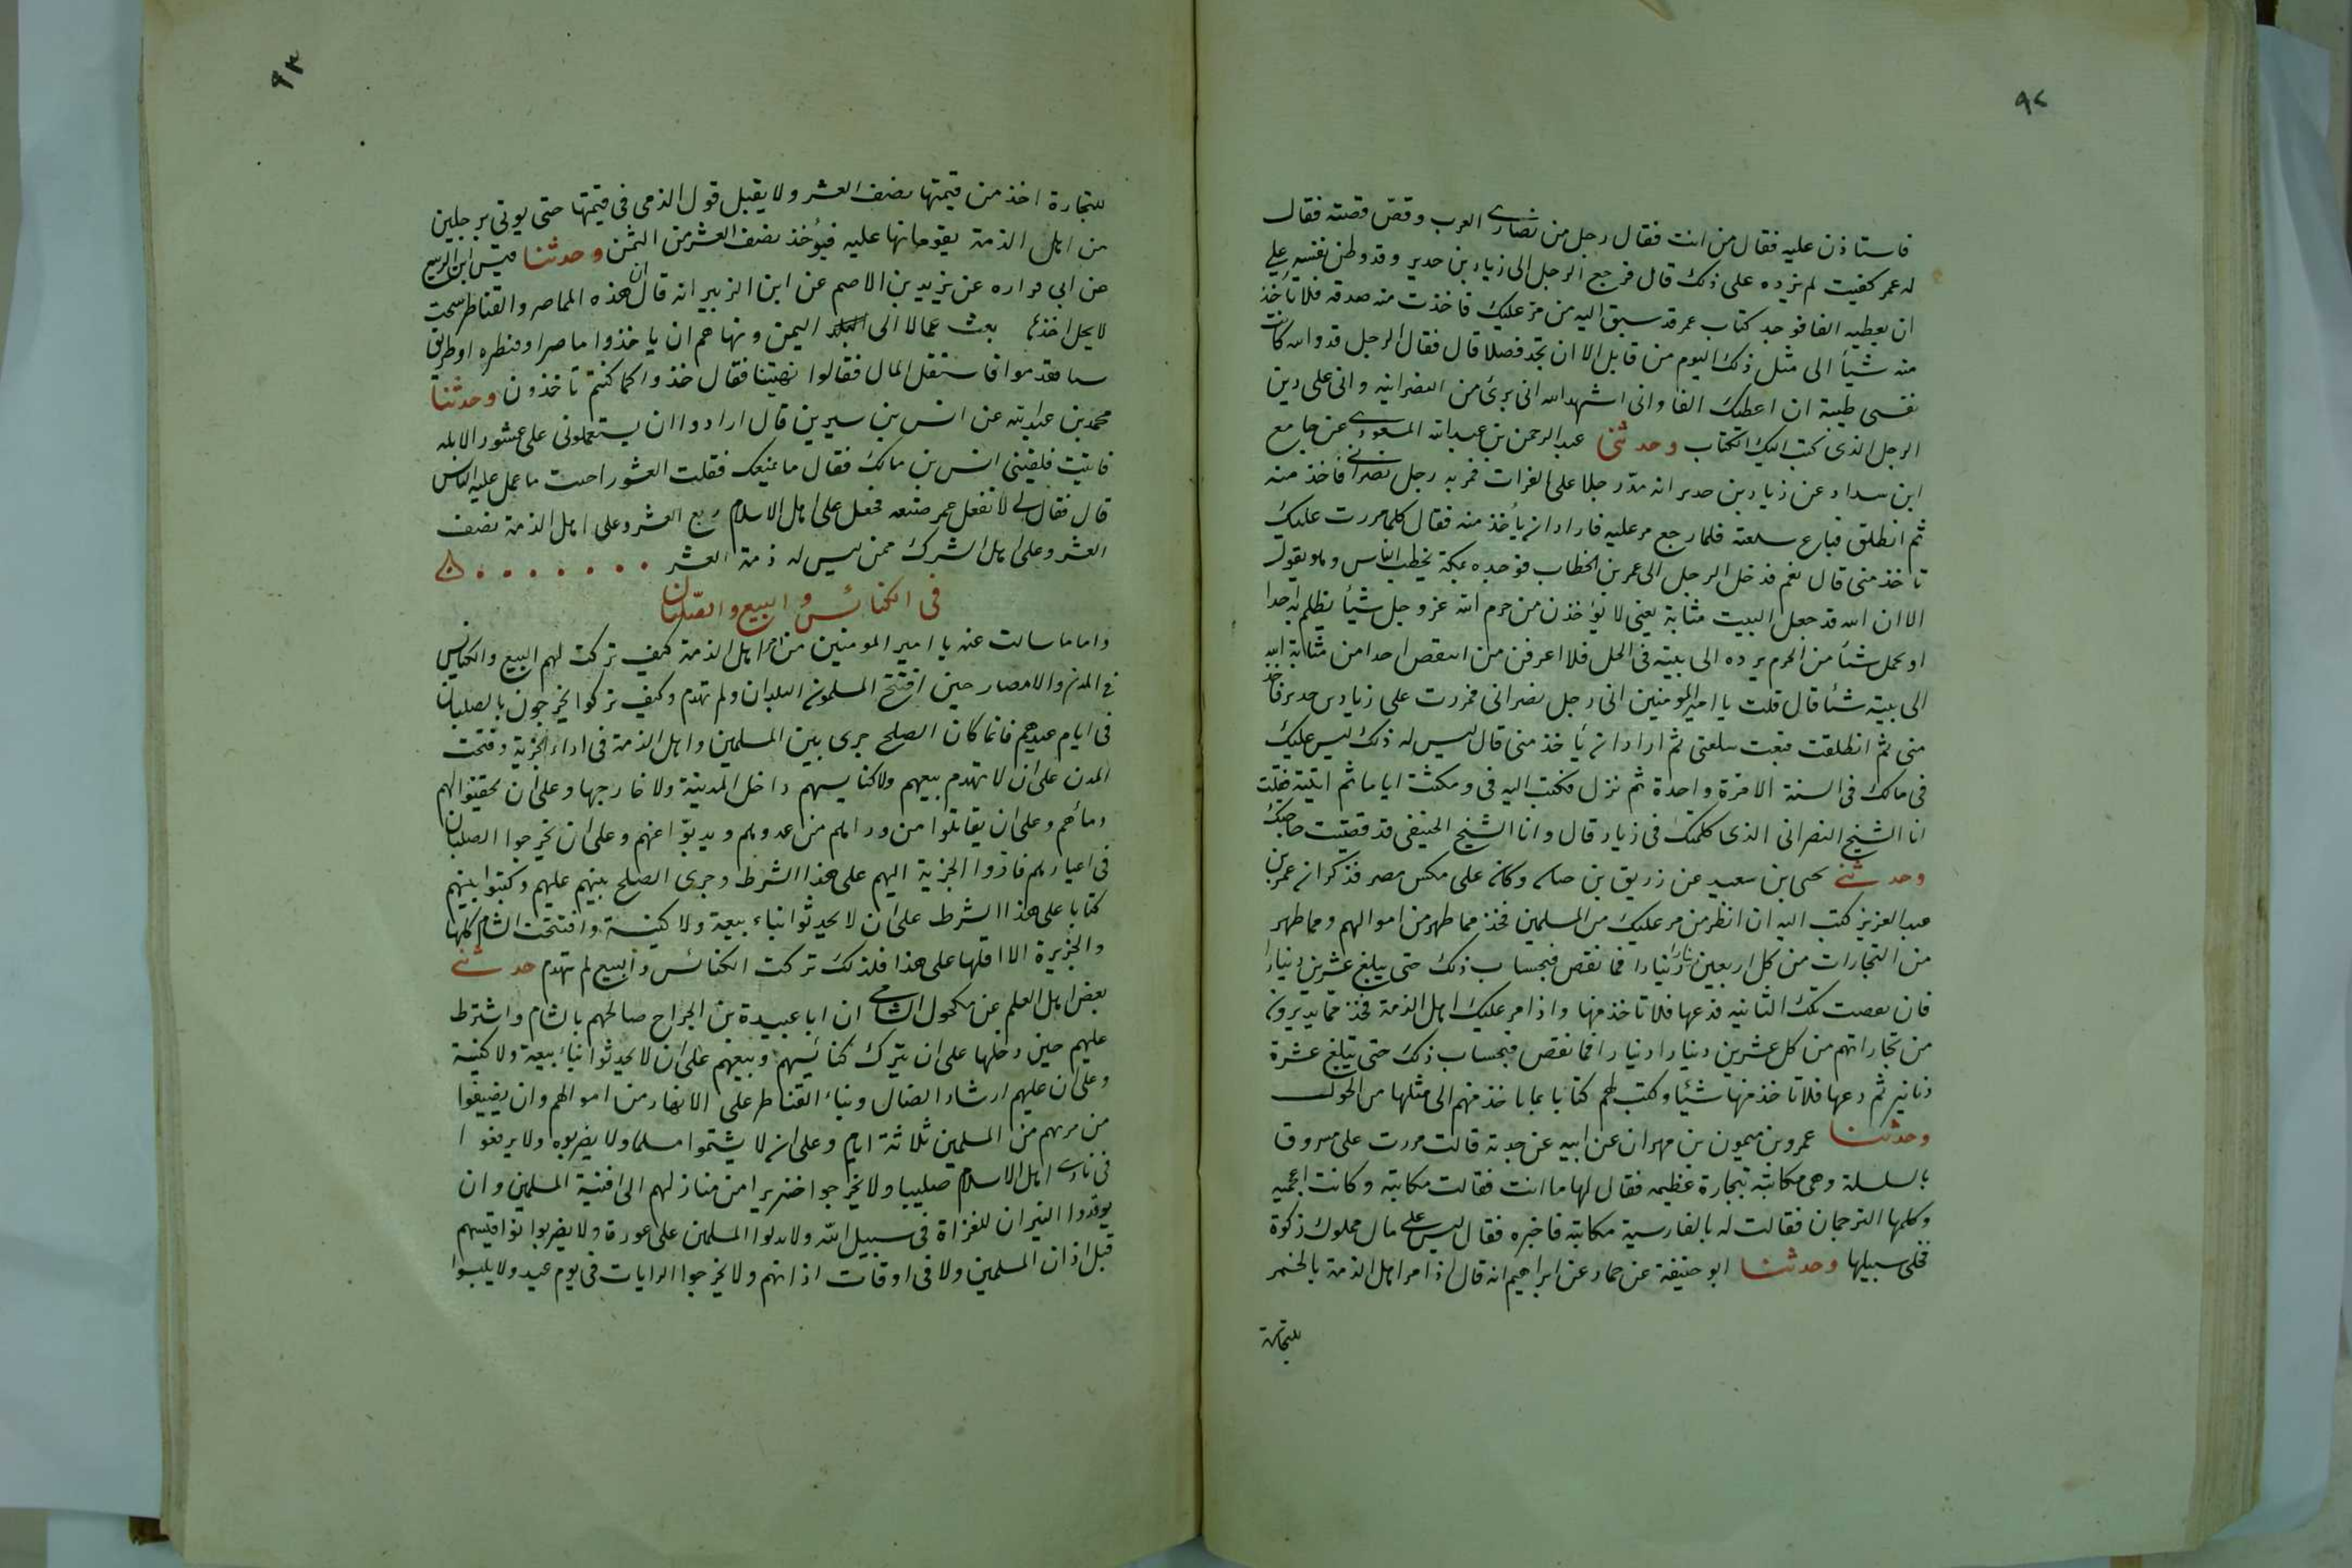 ٩٢
فاستاذن عليه فقال من انت فقال رجل من نصارى العرب وقصّ قصته فقال
له عمر كفيت لم يزده على ذلك قال فرجع الرجل الى زياد بن حدير وقد وطن نفسه على
ان يعطيه الفا فوجد كتاب عمر قد سبق اليه من مر عليك فاخذت منه صدقه فلا تاخذ
منه شيأ الى مثل ذلك اليوم من قابل الا ان تجد فضلا قال فقال الرجل قد والله كانت
نفسى طيبة ان اعطيك الفا وانى اشهد الله انى برئ من النصرانيه وانى على دين
الرجل الذى كتب اليك الكتاب وحدثنى عبد الرحمن بن عبد الله المسعودى عن جامع
ابن سداد عن زياد بن حدير انه مدّ حبلا على الفرات فمر به رجل نصرانى فاخذ منه
ثم انطلق فباع سلعته فلما رجع مر عليه فاراد ان يأخذ منه فقال كلما مررت عليك
تاخذ منى قال نعم فدخل الرجل الى عمر بن الخطاب فوجده بمكة يخطب الناس وهو يقول
الا ان الله قد جعل البيت مثابة يعنى لا يؤاخذن من حرم الله عز وجل شيأ يظلم به احدا
او يحمل شيأ من الحرم يرده الى بيته فى الحل فلا اعرفن من انتقص احدا من مثابة الله
الى بيته شيأ قال قلت يا امير المومنين انى رجل نصرانى فمررت على زياد بن حدير فاخذ
منى ثم انطلقت فبعت سلعتى ثم اراد ان يأخذ منى قال ليس له ذلك ليس عليك
فى مالك فى السنة الا مرة واحدة ثم نزل فكتب اليه فى ومكثت اياما ثم اتيته فقلت
انا الشيخ النصرانى الذى كلمتك فى زياد قال وانا الشيخ الحنيفى قد قضيت حاجتك
وحدثنى يحيى بن سعيد عن زريق بن حيان وكان على مكس مصر فذكر ان عمر بن
عبد العزيز كتب اليه ان انظر من مر عليك من المسلمين فخذ مما ظهر من اموالهم ومما ظهر
من التجارات من كل اربعين دينارا دينارا فما نقص فبحساب ذلك حتى يبلغ عشرين دينارا
فان نقصت تلك الثانيه فدعها فلا تاخذ منها واذا مر عليك اهل الذمة فخذ مما يديرون
من تجاراتهم من كل عشرين دينارا دينارا فما نقص فبحساب ذلك حتى تبلغ عشرة
دنانير ثم دعها فلا تاخذ منها شيئا وكتب لهم كتابا بما تاخذ منهم الى مثلها من الحول
وحدثنا عمرو بن ميمون بن مهران عن ابيه عن جدته قالت مررت على مسروق
بالسلسلة وهى مكاتبة بتجارة عظيمه فقال لها ما انت فقالت مكاتبه وكانت اعجميه
وكلمها الترجمان فقالت له بالفارسية مكاتبه فاخبره فقال ليس على مال مملوك زكوة
فخلى سبيلها وحدثنا ابو حنيفة عن حماد عن ابراهيم انه قال اذا مر اهل الذمة بالخمر
للتجارة
٩٣
للتجارة اخذ من قيمتها نصف العشر ولا يقبل قول الذمى فى قيمتها حتى يوتى برجلين
من اهل الذمة يقومانها عليه فيؤخذ نصف العشر من الثمن وحدثنا قيس ابن الربيع
عن ابى فراره عن يزيد بن الاصم عن ابن الزبير انه قال ان هذه المماصر والقناطر سحت
لا يحل اخذها بعث عمالا الى اليمن ونهاهم ان ياخذوا ماصرا او قنطره او طريق
فقدموا فاستقل المال فقالوا نهيتنا فقال خذوا كما كنتم تاخذون وحدثنا
محمد بن عبد الله عن انس بن سيرين قال ارادوا ان يستعملونى على عشور الابله
فابيت فلقينى انس بن مالك فقال ما يمنعك فقلت العشور اخبث ما عمل عليه الناس
قال فقال لى لا تفعل عمر صنعه فجعل على اهل الاسلام ربع العشر وعلى اهل الذمة نصف
العشر وعلى اهل الشرك ممن ليس له ذمة العشر
فى الكنائس والبيع والصّلبان
واما ما سالت عنه يا امير المومنين من امر اهل الذمة كيف تركت لهم البيع والكنائس
فى المدن والامصار حين افتتح المسلمون البلدان ولم تهدم وكيف تركوا يخرجون بالصلبان
فى ايام عيدهم فانما كان الصلح جرى بين المسلمين واهل الذمة فى اداء الجزية وفتحت
المدن على ان لا تهدم بيعهم ولا كنايسهم داخل المدينة ولا خارجها وعلى ان يحقنوا لهم
دمائهم وعلى ان يقاتلوا من وراهم من عدوهم ويدبوا عنهم وعلى ان يخرجوا الصلبان
فى اعيادهم فادوا الجزية اليهم على هذا الشرط وجرى الصلح بينهم عليهم وكتبوا بينهم
كتابا على هذا الشرط على ان لا يحدثوا بناء بيعة ولا كنيسة وافتتحت الشام كلها
والجزيرة الا اقلها على هذا فلذلك تركت الكنائس والبيع لم تهدم حدثنى
بعض اهل العلم عن مكحول الشامى ان ابا عبيدة بن الجراح صالحهم بالشام واشترط
عليهم حين دخلها على ان يترك كنائسهم وبيعهم على ان لا يحدثوا بناء بيعة ولا كنيسة
وعلى ان عليهم ارشاد الضال وبناء القناطر على الانهار من اموالهم وان يضيفوا
من مر بهم من المسلمين ثلاثة ايام وعلى ان لا يشتموا مسلما ولا يضربوه ولا يرفعوا
فى نادى اهل الاسلام صليبا ولا يخرجوا خنزيرا من منازلهم الى افنية المسلمين وان
يوقدوا النيران للغزاة فى سبيل الله ولا يدلوا المسلمين على عورة ولا يضربوا نواقيسهم
قبل اذان المسلمين ولا فى اوقات اذانهم ولا يخرجوا الرايات فى يوم عيد ولا يلبسوا